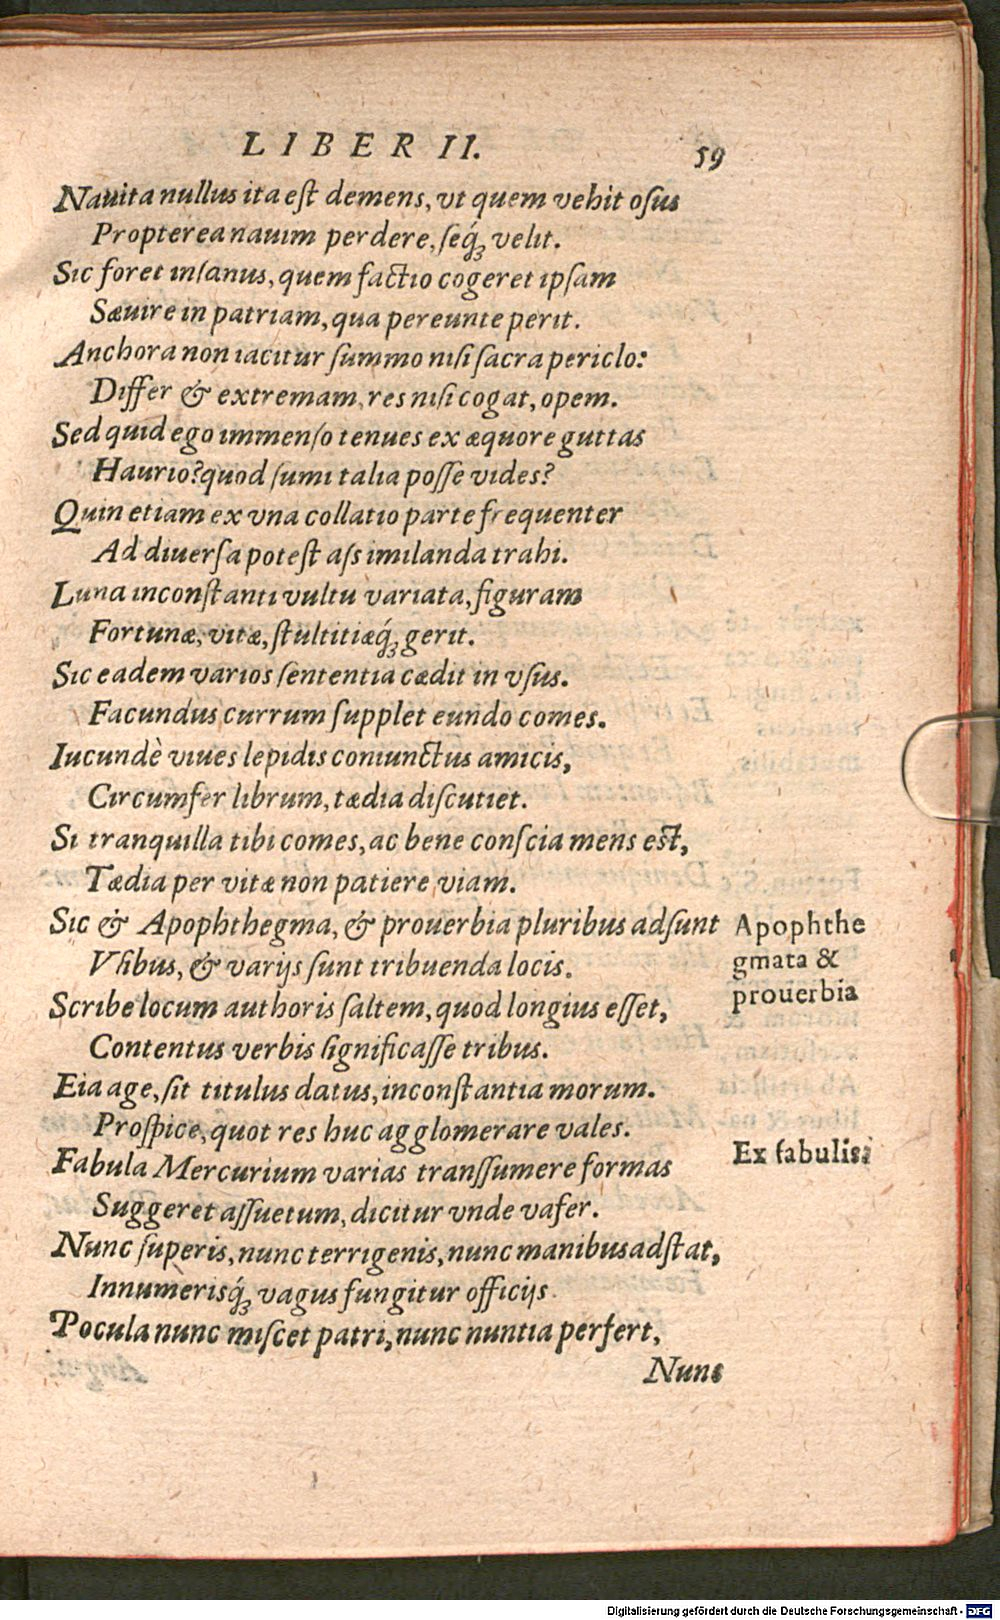 LIBER II. 59
Nauita nullus ita est demens, vt quem vehit osus
Propterea nauim perdere, seq́; velit.
Sic foret insanus, quem factio cogeret ipsam
Sæuire in patriam, qua pereunte perit.
Anchora non iacitur summo nisi sacra periclo:
Differ & extremam, res nisi cogat, opem.
Sed quid ego immenso tenues ex æquore guttas
Haurio? quod sumi talia posse vides?
Quin etiam ex vna collatio parte frequenter
Ad diuersa potest assimilanda trahi.
Luna inconstanti vultu variata, figuram
Fortunæ, vitæ, stultitiæq́; gerit.
Sic eadem varios sententia cædit in vsus.
Facundus currum supplet eundo comes.
Iucundè viues lepidis coniunctus amicis,
Circumfer librum, tædia discutiet.
Si tranquilla tibi comes, ac bene conscia mens est,
Tædia per vitæ non patiere viam.
Sic & Apophthegma, & prouerbia pluribus adsunt
Vsibus, & varijs sunt tribuenda locis.
Apophthe
gmata &
prouerbia
Scribe locum authoris saltem, quod longius esset,
Contentus verbis significasse tribus.
Eia age, sit titulus datus, inconstantia morum.
Prospice, quot res huc agglomerare vales.
Fabula Mercurium varias transsumere formas
Ex fabulis:
Suggeret assuetum, dicitur vnde vafer.
Nunc superis, nunc terrigenis, nunc manibus adstat,
Innumerisq́; vagus fungitur officijs.
Pocula nunc miscet patri, nunc nuntia perfert,
Nunc
Digitalisierung gefördert durch die Deutsche Forschungsgemeinschaft - DFG